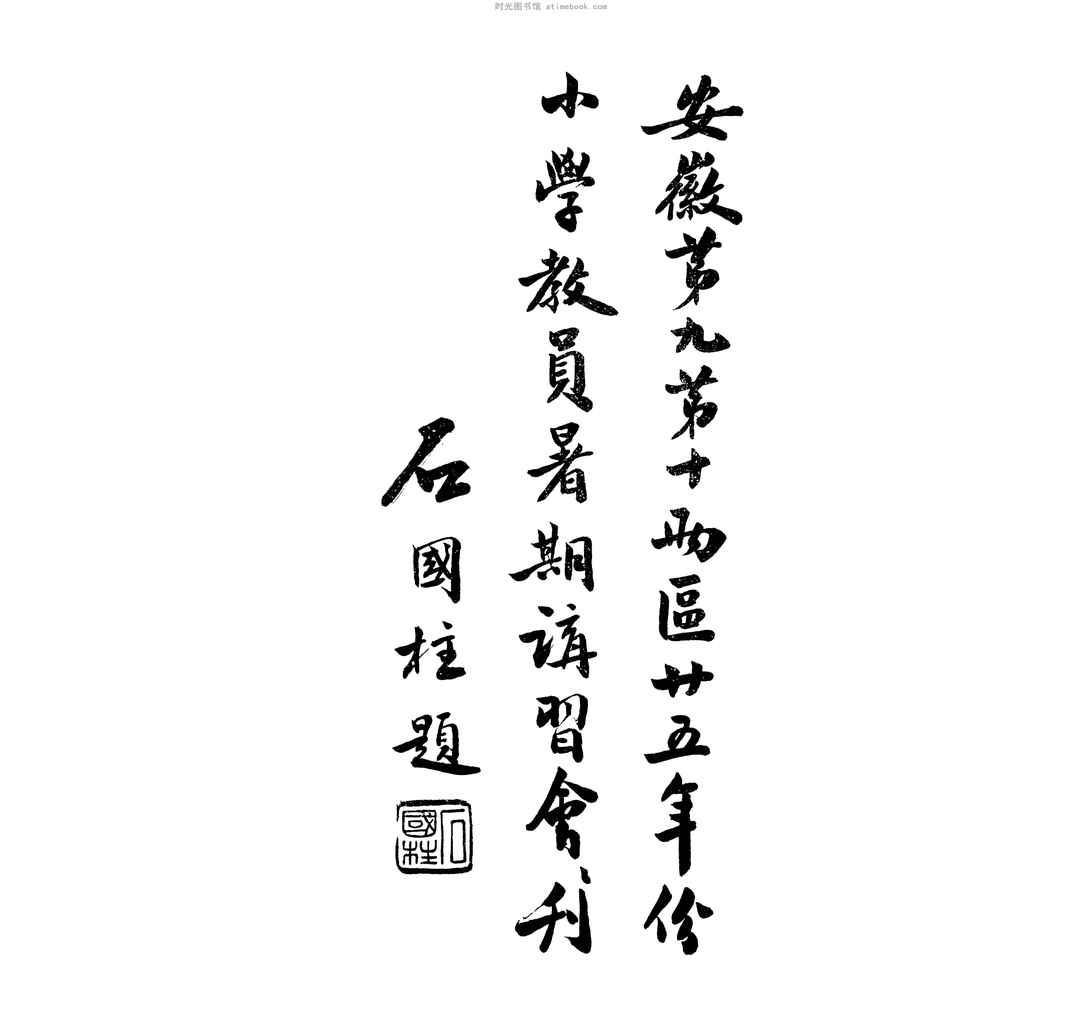 时光图书馆 atimebook.com
安徽第九第十兩區廿五年份
小學教員暑期講習會刊
石國柱題
石國柱